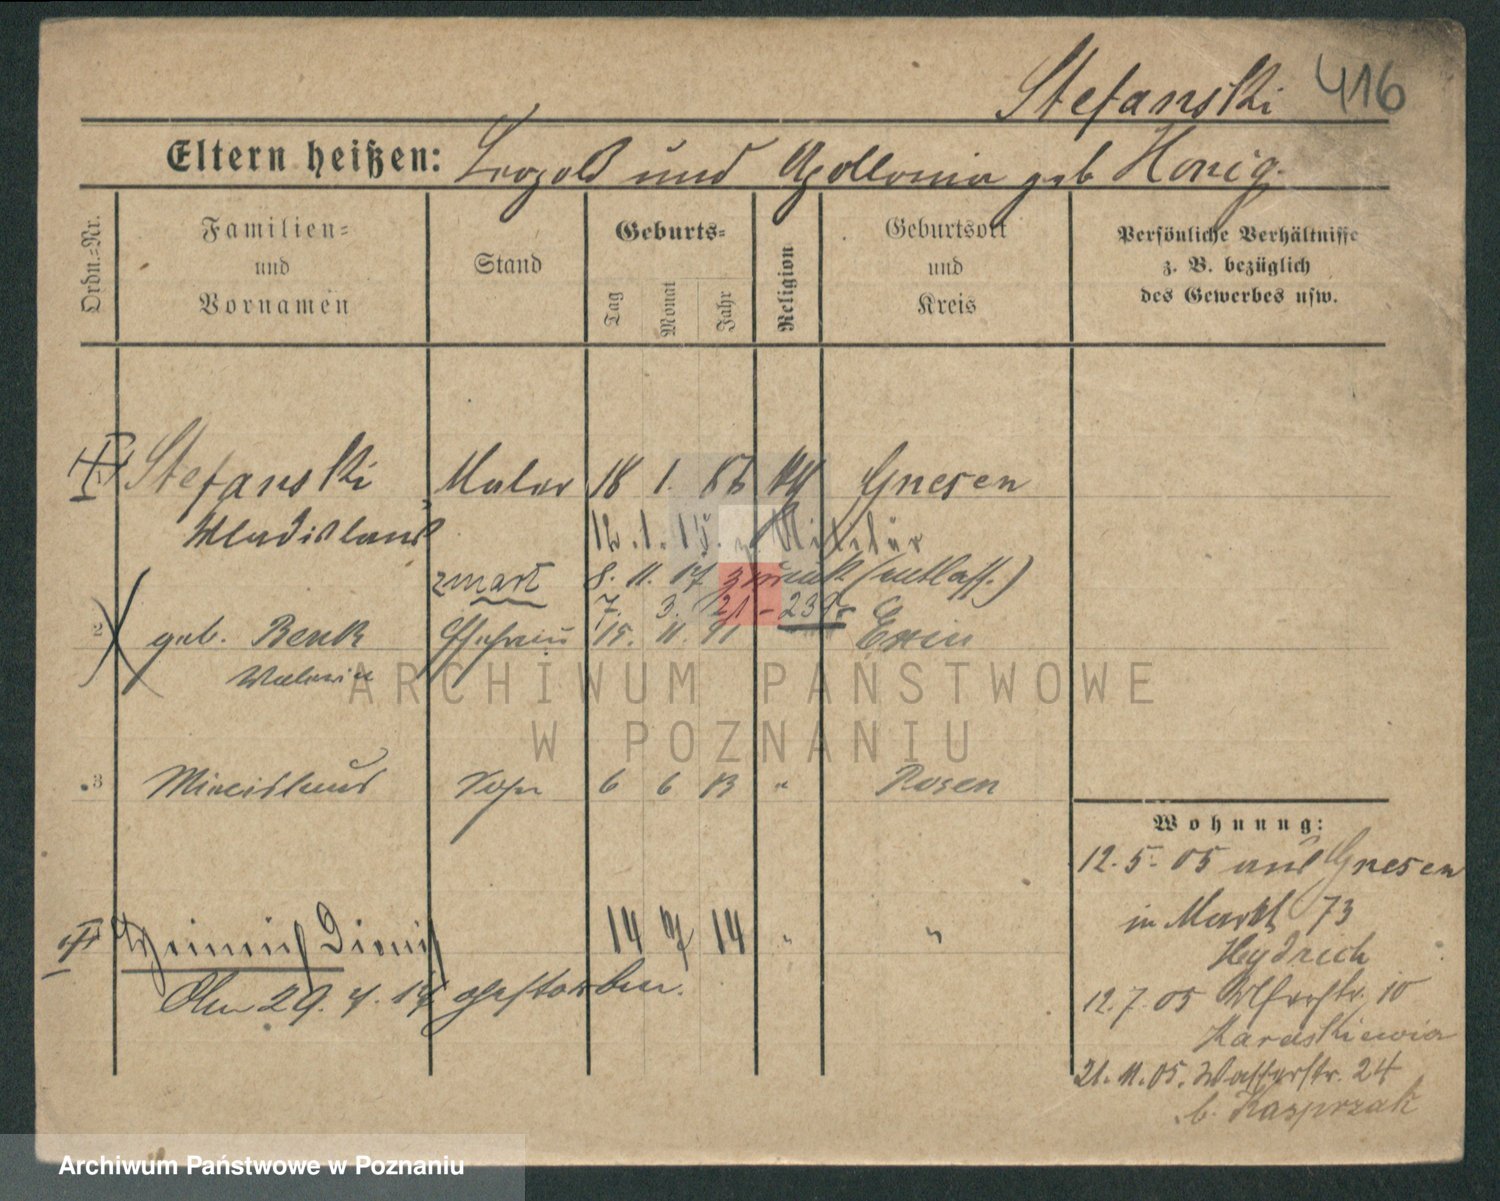 Stefanski 416
Eltern heißen: Leopold und Apollonia geb Honig.
Ordn.-Nr.
Familien- und Vornamen
Stand
Geburts-
Tag
Monat
Jahr
Religion
Geburtsort und Kreis
Persönliche Verhältnisse
z. B. bezüglich
des Gewerbes usw.
Stefanski Maler 18 1. 86 Gnesen
Wladislaus 12. 1. 15. Militär
8. 11. 17 zurück (entlass.)
7. 3. 21 - 239
2 geb. Benk Ehefrau 15. 11. 91 Exin
3 Miecislaus Sohn 6 6 13 " Posen
Heinrich Dionis 14 7 14 " "
Am 29. 7. 14 gestorben.
Wohnung:
12. 5. 05 aus Gnesen
in Markt 73
Heydrich
12. 7. 05 10
21. 11. 05. Wasserstr. 24
b. Kasprzak
ARCHIWUM PAŃSTWOWE
W POZNANIU
Archiwum Państwowe w Poznaniu